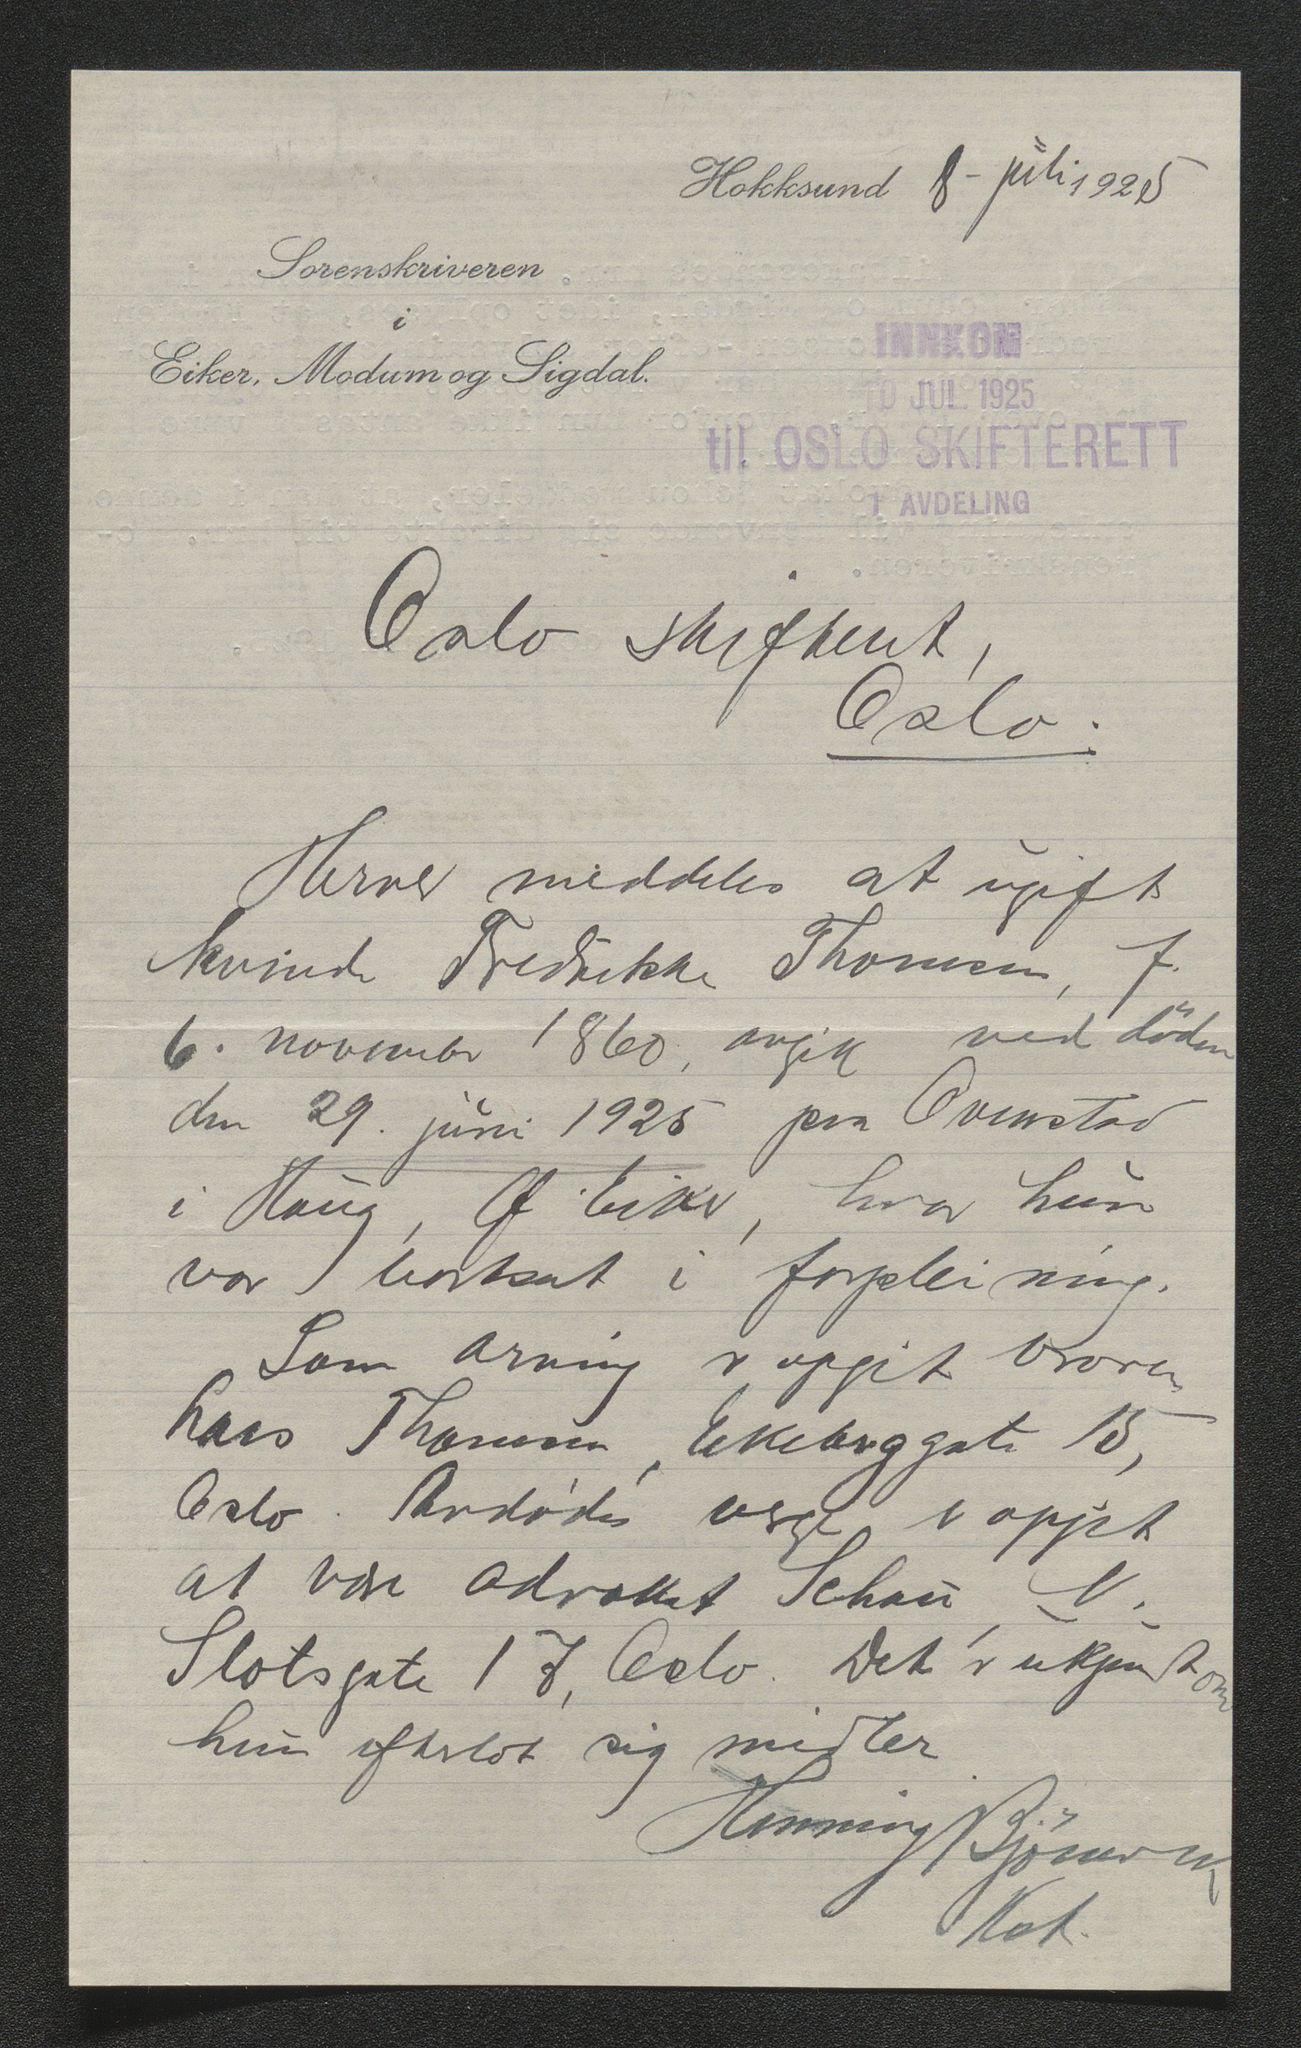 Hokksund 8- juli 1925
Sorenskriveren
i
Eiker, Modum og Sigdal.
INNKOM
10 JUL. 1925
til OSLO SKIFTERETT
1 AVDELING
Oslo skifterett,
Oslo.
Herved meddeles at ugift
kvinde Fredrikke Thomsen, f.
6. november 1860, avgik ved döden
den 29. juni 1925 paa Ovenstad
i Haug, Ø Eiker, hvor hun
var bortsat i forpleining.
Som arving er opgit broren
Lars Thomsen, Ekeberggate 15,
Oslo. Avdødes verge er opgit
at være advokat Schou, N.
Slotsgate 17, Oslo. Det er ukjent om
hun efterlot sig midler
Henning